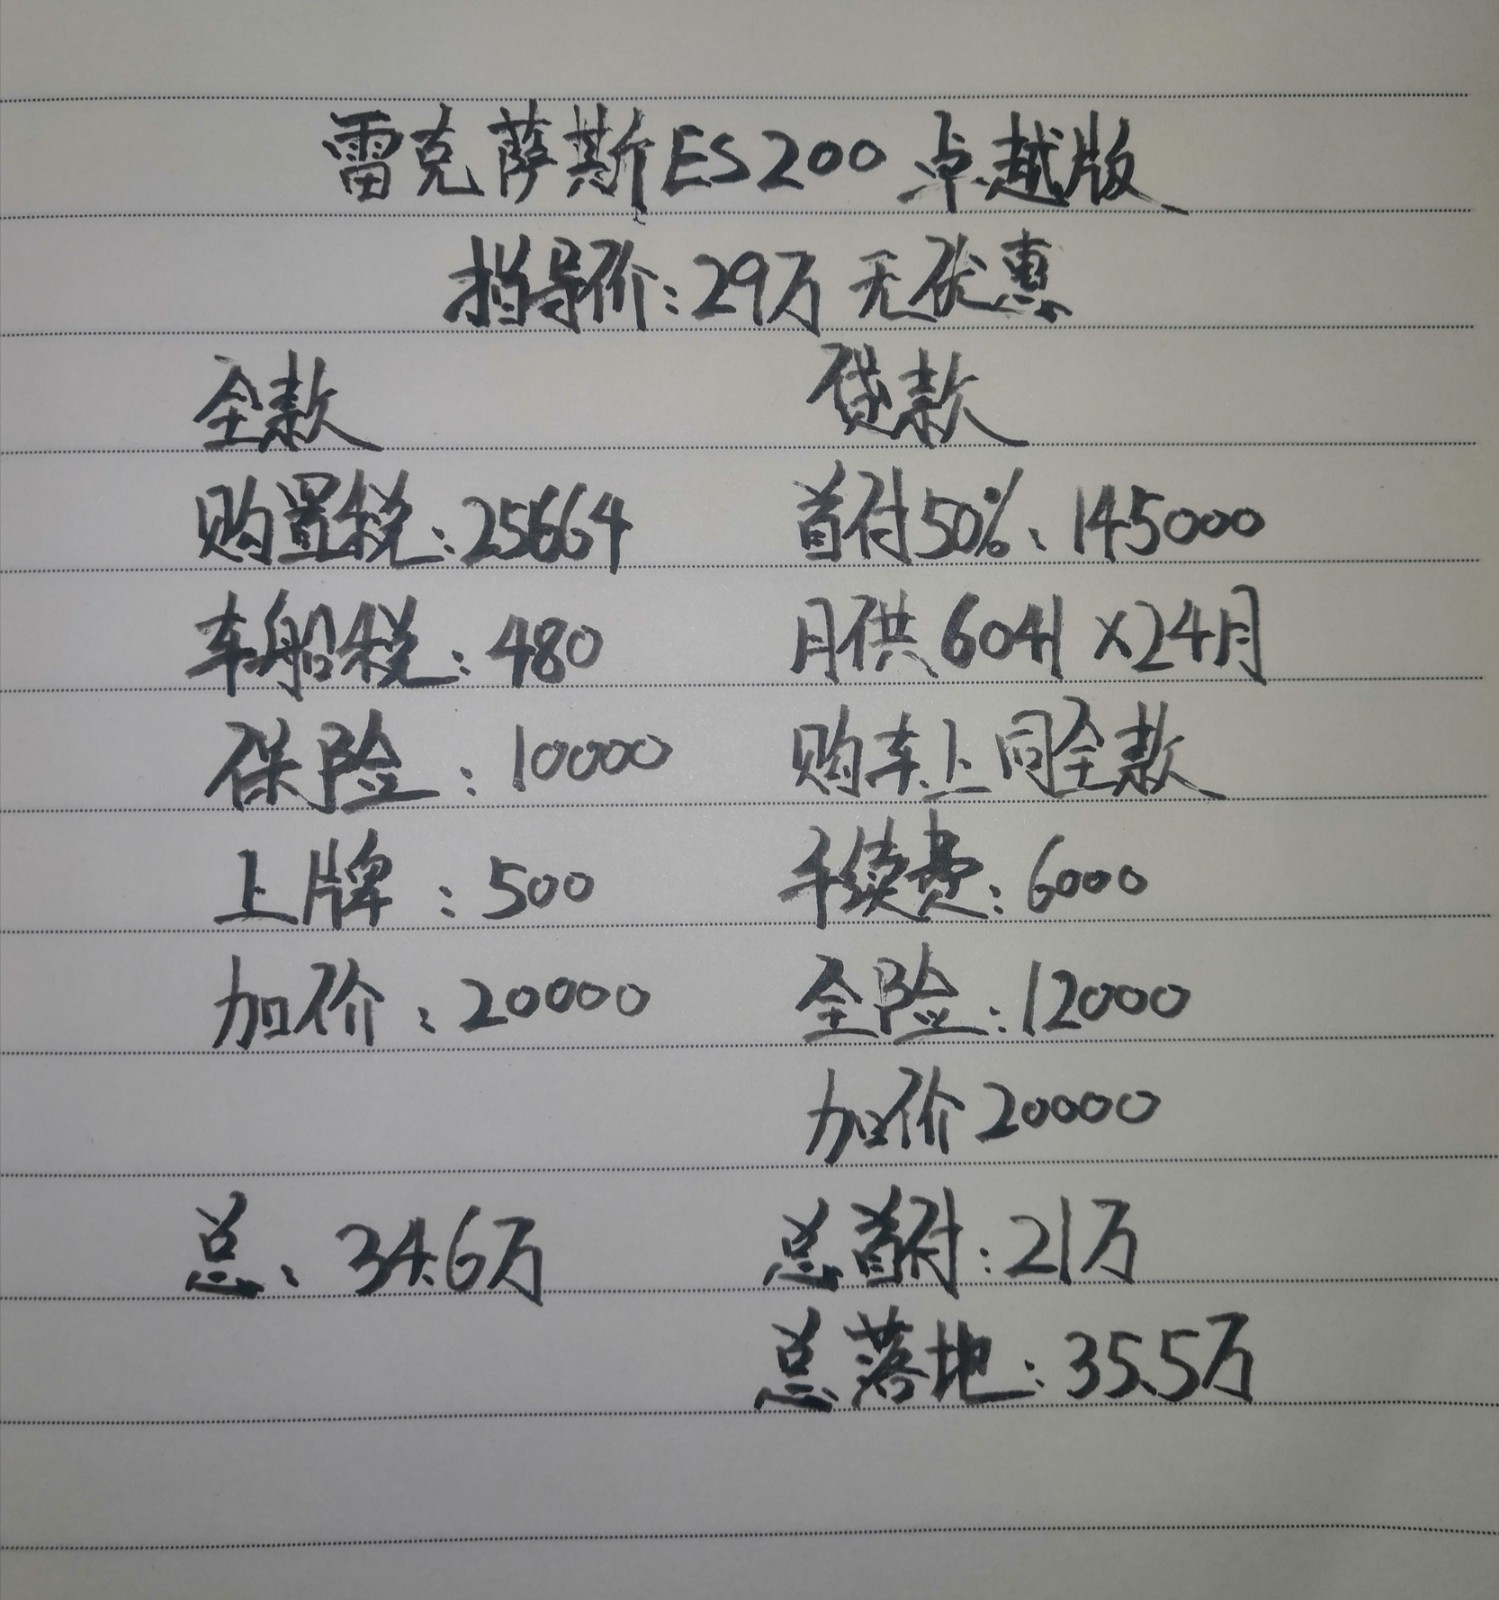 雷克萨斯ES200 卓越版
指导价:29万 无优惠
全款 贷款
购置税:25664 首付50%:145000
车船税:480 月供6041×24月
保险:10000 购车上同全款
上牌:500 手续费:6000
加价:20000 全险:12000
加价20000
总:34.6万 总首付:21万
总落地:35.5万